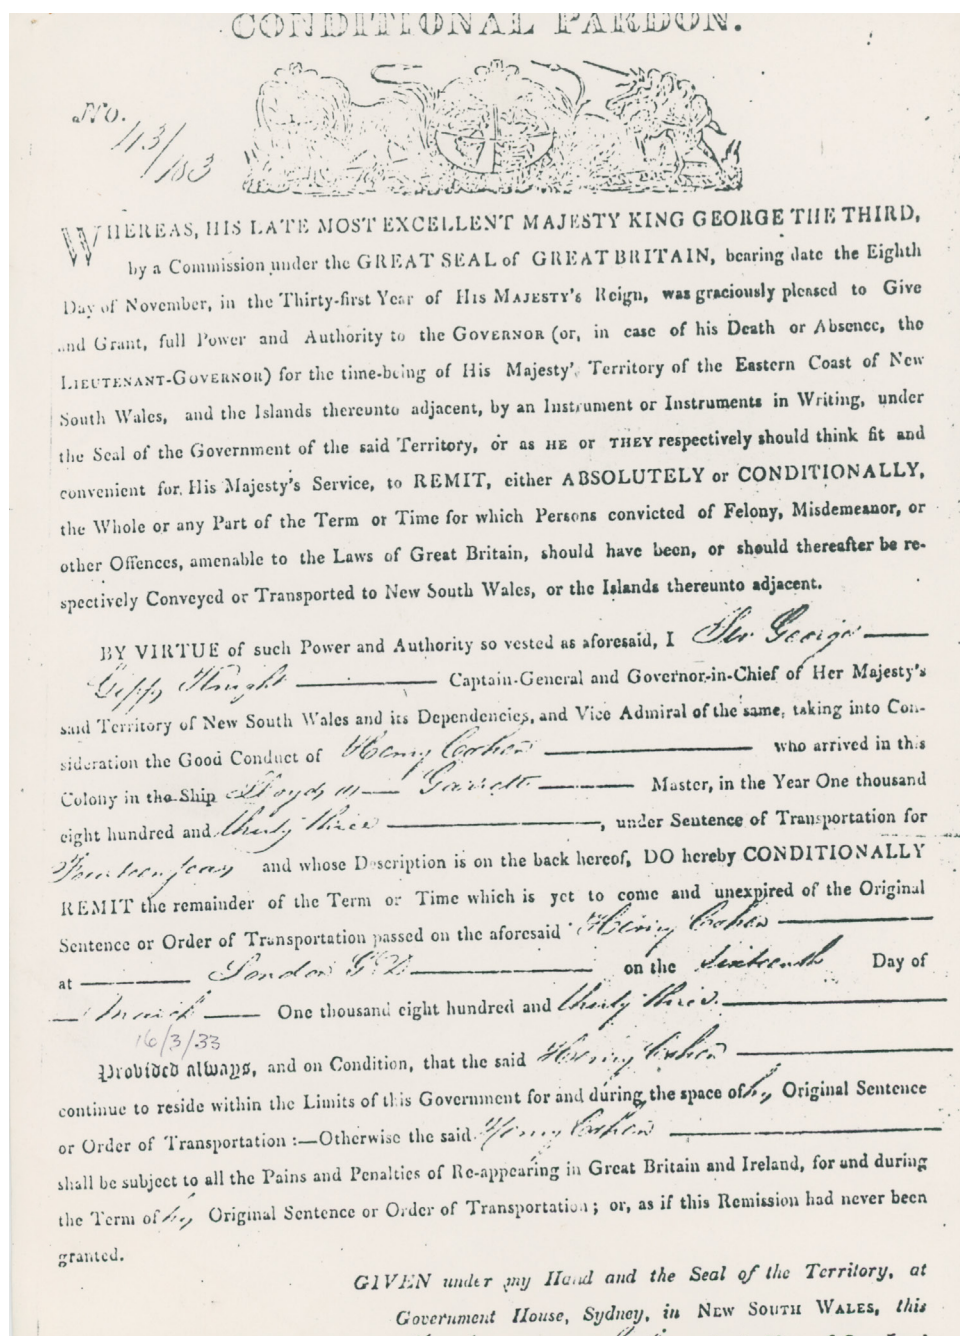 CONDITIONAL PARDON.
No.
43/183
WHEREAS, HIS LATE MOST EXCELLENT MAJESTY KING GEORGE THE THIRD,
by a Commission under the GREAT SEAL of GREAT BRITAIN, bearing date the Eighth
Day of November, in the Thirty-first Year of HIS MAJESTY'S Reign, was graciously pleased to Give
and Grant, full Power and Authority to the GOVERNOR (or, in case of his Death or Absence, the
LIEUTENANT-GOVERNOR) for the time-being of His Majesty's Territory of the Eastern Coast of New
South Wales, and the Islands thereunto adjacent, by an Instrument or Instruments in Writing, under
the Seal of the Government of the said Territory, or as HE or THEY respectively should think fit and
convenient for His Majesty's Service, to REMIT, either ABSOLUTELY or CONDITIONALLY,
the Whole or any Part of the Term or Time for which Persons convicted of Felony, Misdemeanor, or
other Offences, amenable to the Laws of Great Britain, should have been, or should thereafter be re-
spectively Conveyed or Transported to New South Wales, or the Islands thereunto adjacent.
BY VIRTUE of such Power and Authority so vested as aforesaid, I Sir George
Gipps Knight Captain-General and Governor-in-Chief of Her Majesty's
said Territory of New South Wales and its Dependencies, and Vice Admiral of the same, taking into Con-
sideration the Good Conduct of Henry Cohen who arrived in this
Colony in the Ship Lloyds Garrett Master, in the Year One thousand
eight hundred and thirty three, under Sentence of Transportation for
Fourteen years and whose Description is on the back hereof, DO hereby CONDITIONALLY
REMIT the remainder of the Term or Time which is yet to come and unexpired of the Original
Sentence or Order of Transportation passed on the aforesaid Henry Cohen
at London G.D. on the Sixteenth Day of
March One thousand eight hundred and thirty three.
16/3/33
Provided always, and on Condition, that the said Henry Cohen
continue to reside within the Limits of this Government for and during the space of his Original Sentence
or Order of Transportation :—Otherwise the said Henry Cohen
shall be subject to all the Pains and Penalties of Re-appearing in Great Britain and Ireland, for and during
the Term of his Original Sentence or Order of Transportation; or, as if this Remission had never been
granted.
GIVEN under my Hand and the Seal of the Territory, at
Government House, Sydney, in NEW SOUTH WALES, this